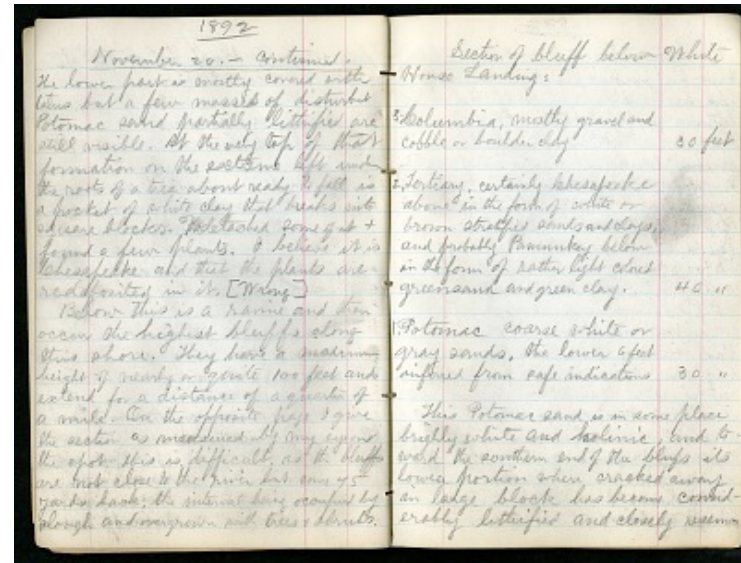 1892
November 20. - Continued.
The lower part is mostly covered with
talus but a few masses of disturbed
Potomac sand partially lithified are
still visible. At the very top of that
formation on the extreme left under
the roots of a tree about ready to fall is
a pocket of white clay that breaks into
square blocks. I detached some of it +
found a few plants. I believe it is
Chesapeake and that the plants are
redeposited in it. [Wrong]
Below this is a ravine and then
occur the highest bluffs along
this shore. They have a maximum
height of nearly or quite 100 feet and
extend for a distance of a quarter of
a mile. On the opposite page I give
the section as measured by my eye on
the spot. This is difficult as the bluffs
are not close to the river but some 75
yards back, the interval being occupied by
slough and overgrown with trees & shrubs.
Section of bluff below White
House Landing:
3. Columbia, mostly gravel and
cobble or boulder clay 30 feet
2. Tertiary, certainly Chesapeake
above in the form of white or
brown stratified sands and clays,
and probably Pamunkey below
in the form of rather light colored
greensand and green clay. 40 "
1. Potomac coarse white or
gray sands, the lower 6 feet
inferred from safe indications 30 "
This Potomac sand is in some place
brightly white and kolinic, and to-
ward the southern end of the bluffs its
lower portion where cracked away
in large block has become consid-
erably lithified and closely resem